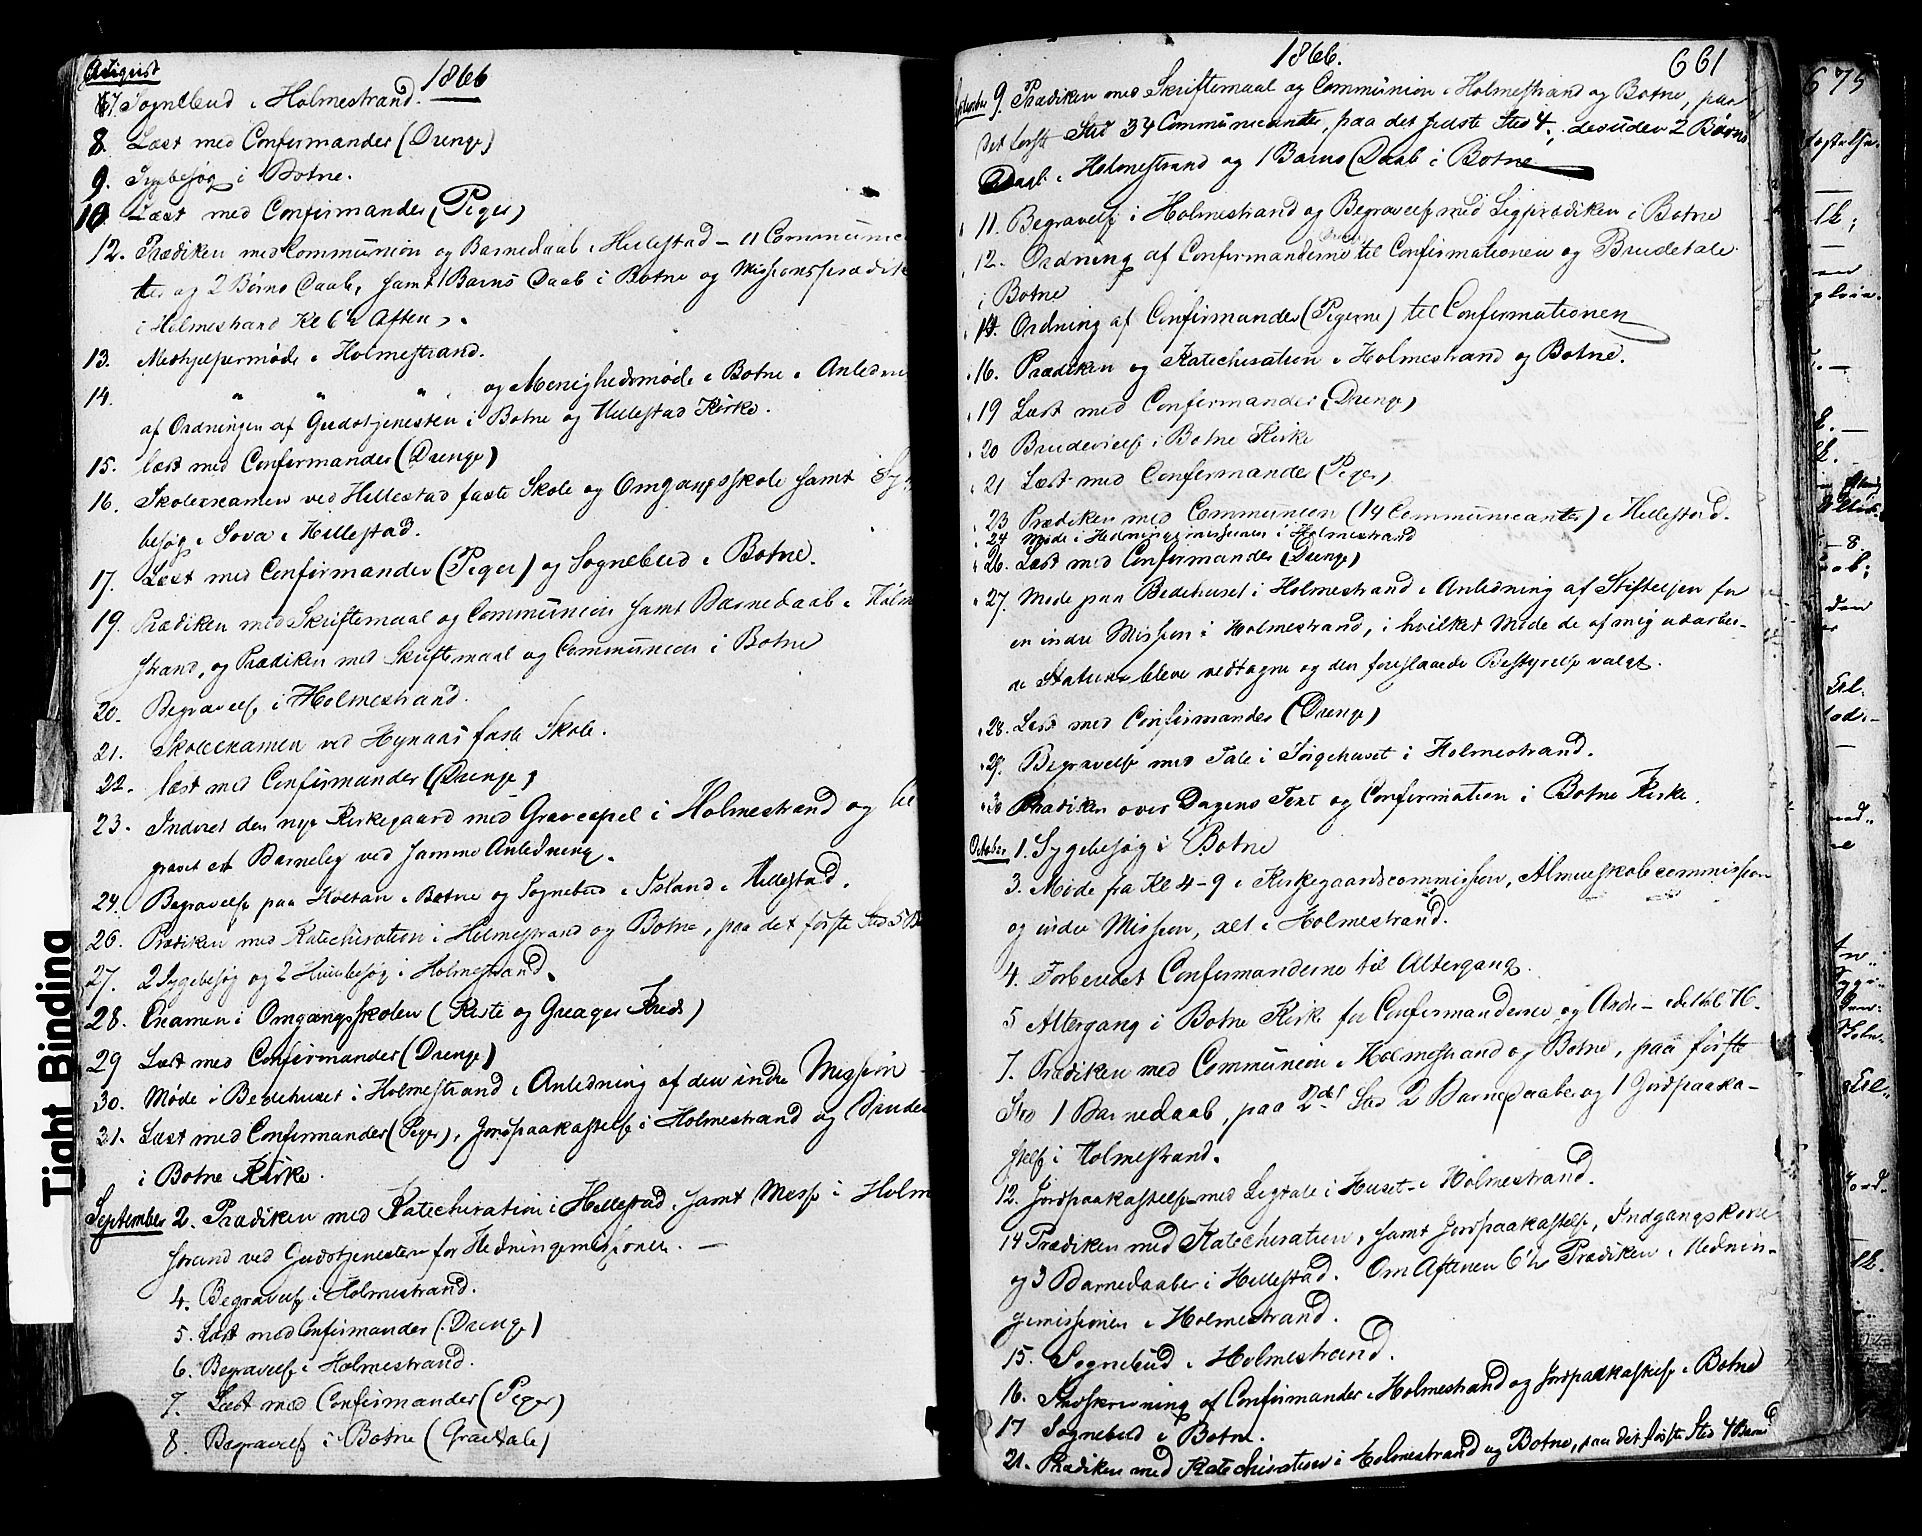 August
1866
7. Sognebud i Holmestrand.
8. Læst med Confirmander (Drenge)
9. Sygebesøg i Botne.
10. Læst med Confirmander (Piger)
12. Prædiken med Communion og Barnedaab i Hillestad – 11 Communica
ter og 2 Børns Daab, samt 1 Barns Daab i Botne og Missionsprædik
i Holmestrand Kl 6½ Aften.
13. Medhjelpermøde i Holmestrand.
14. " " " og Menighedsmøde i Botne i Anledn
af Ordningen af Gudstjenesten i Botne og Hillestad Kirke.
15. læst med Confirmander (Drenge)
16. Skoleexamen ved Hillestad faste Skole og Omgangsskole samt Sy
besøg i Sova i Hillestad.
17. Læst med Confirmander (Piger) og Sognebud i Botne.
19. Prædiken med Skriftemaal og Communion samt Barnedaab i Holm
strand, og Prædiken med Skriftemaal og Communion i Botne
20. Begravelse i Holmestrand.
21. Skoleexamen ved Hynaas faste Skole.
22. læst med Confirmander (Drenge)
23. Indviet den nye Kirkegaard med Gravcapel i Holmestrand og be
gravet et Barnelig ved samme Anledning.
24. Begravelse paa Holtan i Botne og Sognebud i Island i Hillestad.
26. Prædiken med Katechisation i Holmestrand og Botne, paa det første Sted 5 B
27. 2 Sygebesøg og 2 Huusbesøg i Holmestrand.
28. Examen i Omgangsskolen ( og Kreds)
29 Læst med Confirmander (Drenge)
30. Møde i Bedehuset i Holmestrand i Anledning af den indre Mission
31. Læst med Confirmander (Piger), Jordpaakastelse i Holmestrand og Brude
i Botne Kirke.
September 2. Prædiken med Katechisation i Hillestad, samt Messe i Holm
strand ved Gudstjenesten for Hedningemissionen. —
4. Begravelse i Holmestrand.
5. Læst med Confirmander (Drenge)
6. Begravelse i Holmestrand.
7. Læst med Confirmander (Piger)
8. Begravelse i Botne (Gravtale)
1866.
661
September 9. Prædiken med Skriftemaal og Communion i Holmestrand og Botne, paa
det første Sted 34 Communicanter, paa det sidste Sted 4, desuden 2 Børns
Daab i Holmestrand og 1 Barns Daab i Botne
11. Begravelse i Holmestrand og Begravelse med Ligprædiken i Botne
12. Ordning af Confirmanderne til Confirmationen og Brudetale
i Botne
14. Ordning af Confirmander (Pigerne) til Confirmationen
16. Prædiken og Katechisation i Holmestrand og Botne.
19 Læst med Confirmander (Drenge)
20 Brudevielse i Botne Kirke
21 Læst med Confirmander (Piger)
23 Prædiken med Communion (14 Communicanter) i Hillestad.
24 Møde i Hedningemissionen i Holmestrand
26. Læst med Confirmander (Drenge)
27. Møde paa Bedehuset i Holmestrand i Anledning af Stiftelsen for
en indre Mission i Holmestrand, i hvilket Møde de af mig udarbei-
de Statuter bleve vedtagne og den foreslaaede Bestyrelse valgt.
28. Læst med Confirmander (Drenge)
29. Begravelse med Tale i Sørgehuset i Holmestrand.
30 Prædiken over Dagens Text og Confirmation i Botne Kirke.
October 1. Sygebesøg i Botne
3. Møde fra Kl 4–9 i Kirkegaardscommission, Almueskolecommission
og indre Mission, alt i Holmestrand.
4. Forberedet Confirmanderne til Altergang.
5 Altergang i Botne Kirke for Confirmanderne og Andre – 76.
7. Prædiken med Communion i Holmestrand og Botne, paa første
Sted 1 Barnedaab, paa 2det Sted 2 Barnedaaber og 1 Jordpaaka-
stelse i Holmestrand.
12. Jordpaakastelse med Ligtale i Huset i Holmestrand.
14 Prædiken med Katechisation, samt Jordpaakastelse, Indgangskone
og 3 Barnedaaber i Hillestad. Om Aftenen 6½ Prædiken i Hednin-
gemissionen i Holmestrand.
15. Sognebud i Holmestrand.
16. Indskrivning af Confirmander i Holmestrand og Jordpaakastelse i Botne
17 Sognebud i Botne.
21. Prædiken med Katechisation i Holmestrand og Botne, paa det første Sted 4 Barned
675
Tight Binding